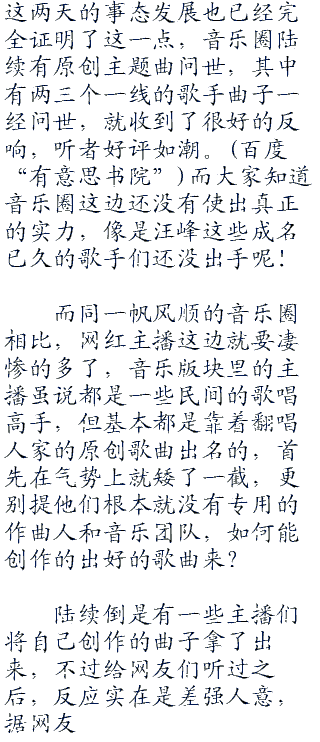 这两天的事态发展也已经完
全证明了这一点，音乐圈陆
续有原创主题曲问世，其中
有两三个一线的歌手曲子一
经问世，就收到了很好的反
响，听者好评如潮。(百度
“有意思书院”)而大家知道
音乐圈这边还没有使出真正
的实力，像是汪峰这些成名
已久的歌手们还没出手呢!
而同一帆风顺的音乐圈
相比，网红主播这边就要凄
惨的多了，音乐版块里的主
播虽说都是一些民间的歌唱
高手，但基本都是靠着翻唱
人家的原创歌曲出名的，首
先在气势上就矮了一截，更
别提他们根本就没有专用的
作曲人和音乐团队，如何能
创作的出好的歌曲来?
陆续倒是有一些主播们
将自己创作的曲子拿了出
来，不过给网友们听过之
后，反应实在是差强人意，
据网友